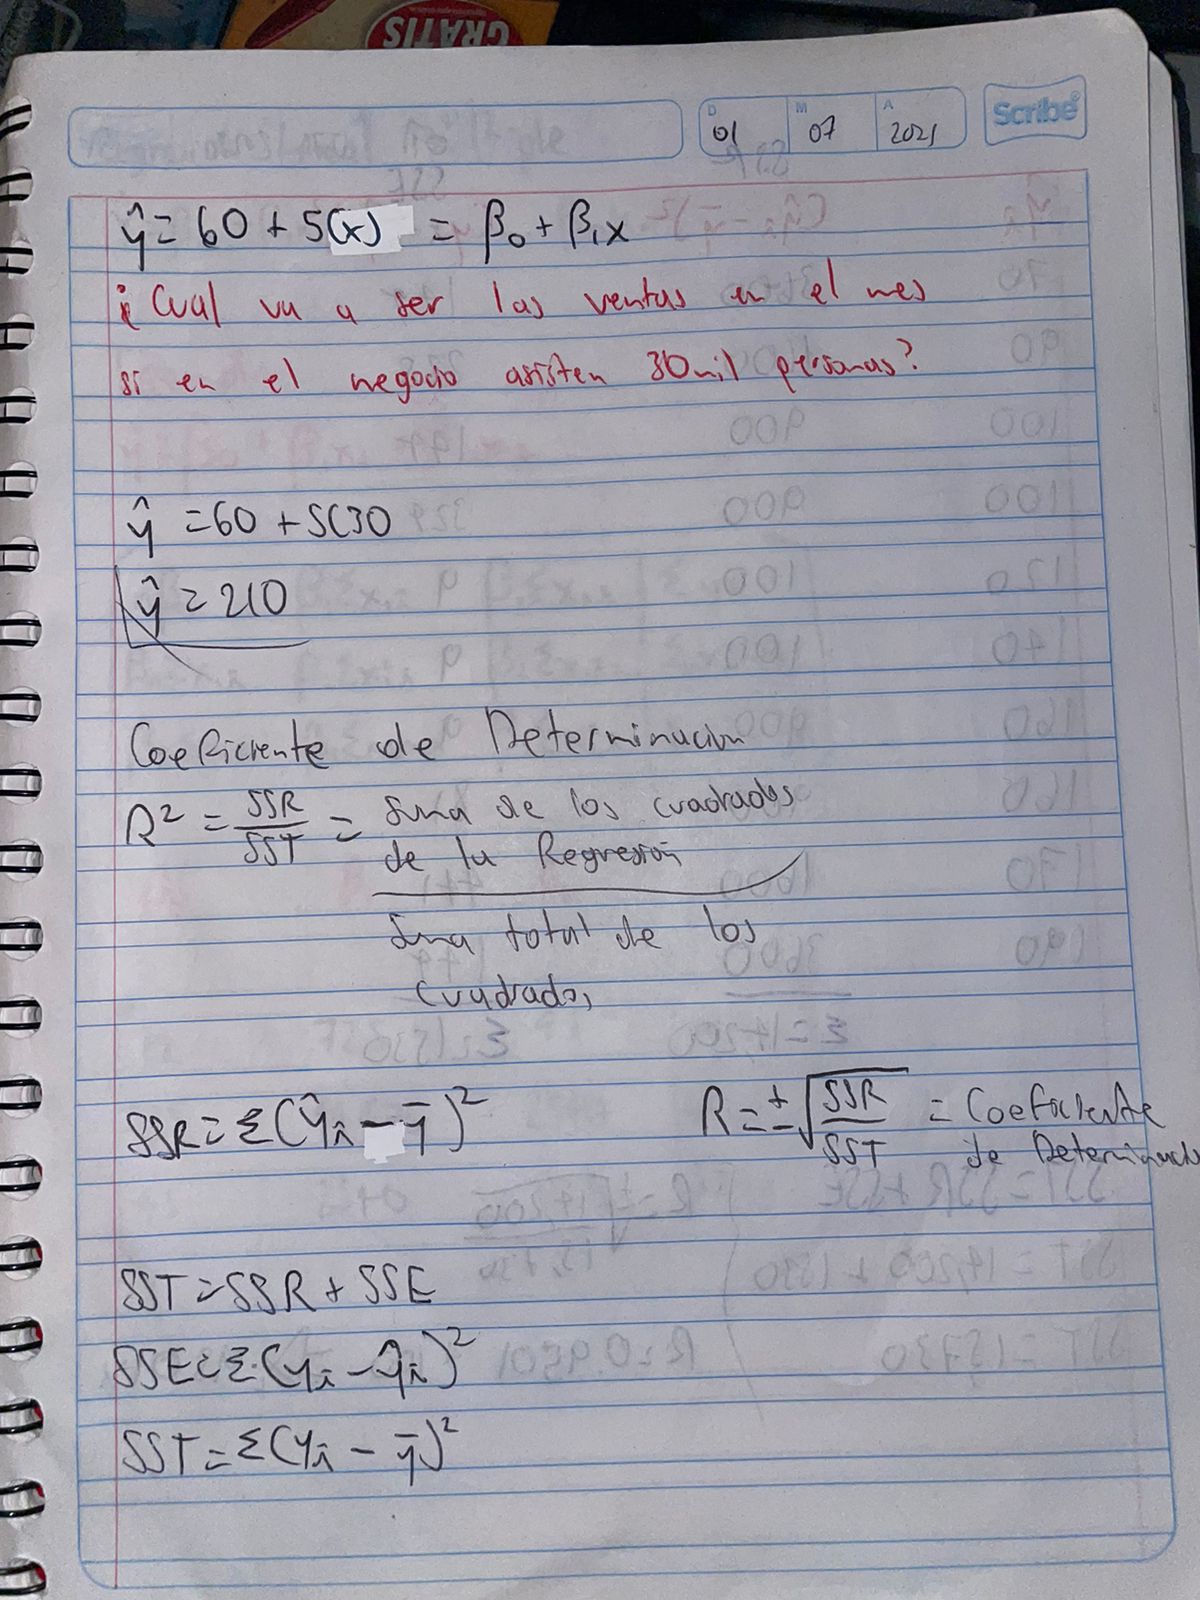 GRATIS
D 01 M 07 A 2021 Scribe
ŷ = 60 + 5(x) = β₀ + β₁x
¿Cual va a ser las ventas en el mes
si en el negocio asisten 30mil personas?
ŷ = 60 + 5(30
ŷ = 210
Coeficiente de Determinacion
R² = SSR/SST = Suma de los cuadrados
de la Regresión
Suma total de los
cuadrados
SSR = Σ(ŷi − ȳ)² R = ±√SSR/SST = Coeficiente
de Determinacion
SST = SSR + SSE
SSE = Σ(yi − ŷi)²
SST = Σ(yi − ȳ)²